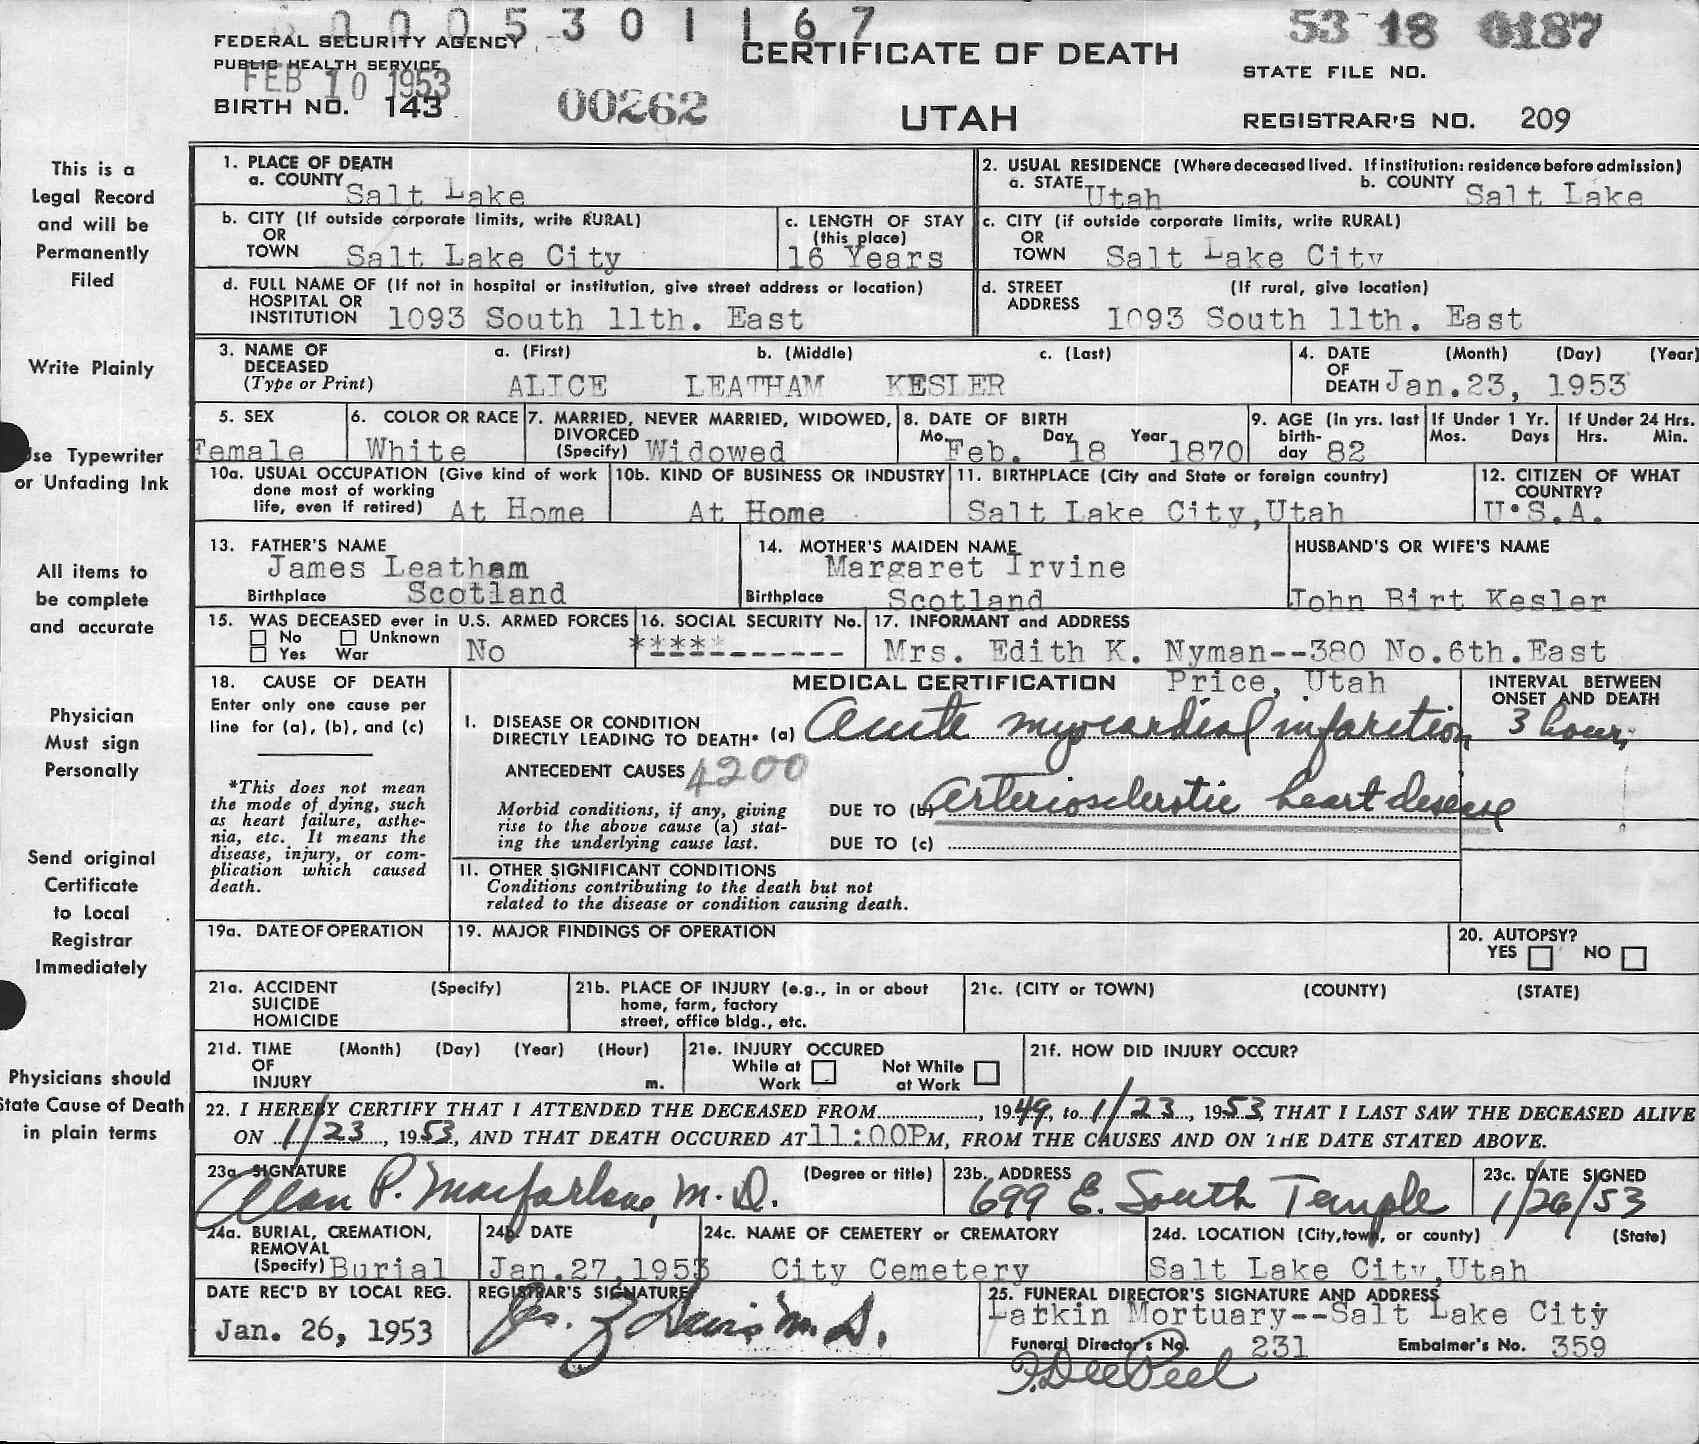 0005301167
53 18 0187
FEDERAL SECURITY AGENCY
PUBLIC HEALTH SERVICE
FEB 10 1953
BIRTH NO. 143
00262
CERTIFICATE OF DEATH
UTAH
STATE FILE NO.
REGISTRAR'S NO. 209
This is a
Legal Record
and will be
Permanently
Filed
Write Plainly
Use Typewriter
or Unfading Ink
All items to
be complete
and accurate
Physician
Must sign
Personally
Send original
Certificate
to Local
Registrar
Immediately
Physicians should
State Cause of Death
in plain terms
1. PLACE OF DEATH
a. COUNTY Salt Lake
2. USUAL RESIDENCE (Where deceased lived. If institution: residence before admission)
a. STATE Utah b. COUNTY Salt Lake
b. CITY (If outside corporate limits, write RURAL)
OR
TOWN Salt Lake City
c. LENGTH OF STAY
(this place)
16 Years
c. CITY (if outside corporate limits, write RURAL)
OR
TOWN Salt Lake City
d. FULL NAME OF (If not in hospital or institution, give street address or location)
HOSPITAL OR
INSTITUTION 1093 South 11th. East
d. STREET (If rural, give location)
ADDRESS 1093 South 11th. East
3. NAME OF a. (First) b. (Middle) c. (Last)
DECEASED
(Type or Print) ALICE LEATHAM KESLER
4. DATE (Month) (Day) (Year)
OF
DEATH Jan.23, 1953
5. SEX
Female
6. COLOR OR RACE
White
7. MARRIED, NEVER MARRIED, WIDOWED,
DIVORCED
(Specify) Widowed
8. DATE OF BIRTH
Mo. Day Year
Feb. 18 1870
9. AGE (in yrs. last
birth-
day 82
If Under 1 Yr.
Mos. Days
If Under 24 Hrs.
Hrs. Min.
10a. USUAL OCCUPATION (Give kind of work
done most of working
life, even if retired) At Home
10b. KIND OF BUSINESS OR INDUSTRY
At Home
11. BIRTHPLACE (City and State or foreign country)
Salt Lake City,Utah
12. CITIZEN OF WHAT
COUNTRY?
U.S.A.
13. FATHER'S NAME
James Leatham
Birthplace Scotland
14. MOTHER'S MAIDEN NAME
Margaret Irvine
Birthplace Scotland
HUSBAND'S OR WIFE'S NAME
John Birt Kesler
15. WAS DECEASED ever in U.S. ARMED FORCES
No Unknown
Yes War No
16. SOCIAL SECURITY No.
****------
17. INFORMANT and ADDRESS
Mrs. Edith K. Nyman--380 No.6th.East
Price, Utah
18. CAUSE OF DEATH
Enter only one cause per
line for (a), (b), and (c)
*This does not mean
the mode of dying, such
as heart failure, asthe-
nia, etc. It means the
disease, injury, or com-
plication which caused
death.
MEDICAL CERTIFICATION
INTERVAL BETWEEN
ONSET AND DEATH
I. DISEASE OR CONDITION
DIRECTLY LEADING TO DEATH* (a) Acute myocardial infarction 3 hours
ANTECEDENT CAUSES 4200
Morbid conditions, if any, giving
rise to the above cause (a) stat-
ing the underlying cause last.
DUE TO (b) arteriosclerotic heart disease
DUE TO (c)
II. OTHER SIGNIFICANT CONDITIONS
Conditions contributing to the death but not
related to the disease or condition causing death.
19a. DATE OF OPERATION
19. MAJOR FINDINGS OF OPERATION
20. AUTOPSY?
YES NO
21a. ACCIDENT (Specify)
SUICIDE
HOMICIDE
21b. PLACE OF INJURY (e.g., in or about
home, farm, factory
street, office bldg., etc.
21c. (CITY or TOWN) (COUNTY) (STATE)
21d. TIME (Month) (Day) (Year) (Hour)
OF
INJURY m.
21e. INJURY OCCURED
While at Not While
Work at Work
21f. HOW DID INJURY OCCUR?
22. I HEREBY CERTIFY THAT I ATTENDED THE DECEASED FROM , 1949, to 1/23, 1953, THAT I LAST SAW THE DECEASED ALIVE
ON 1/23, 1953, AND THAT DEATH OCCURED AT 11:00P M, FROM THE CAUSES AND ON THE DATE STATED ABOVE.
23a. SIGNATURE (Degree or title)
Alan P. Macfarlane, M.D.
23b. ADDRESS
699 E. South Temple
23c. DATE SIGNED
1/26/53
24a. BURIAL, CREMATION,
REMOVAL
(Specify) Burial
24b. DATE
Jan.27,1953
24c. NAME OF CEMETERY or CREMATORY
City Cemetery
24d. LOCATION (City,town, or county) (State)
Salt Lake City,Utah
DATE REC'D BY LOCAL REG.
Jan. 26, 1953
REGISTRAR'S SIGNATURE
Davis M.D.
25. FUNERAL DIRECTOR'S SIGNATURE AND ADDRESS
Larkin Mortuary--Salt Lake City
Funeral Director's No. 231 Embalmer's No. 359